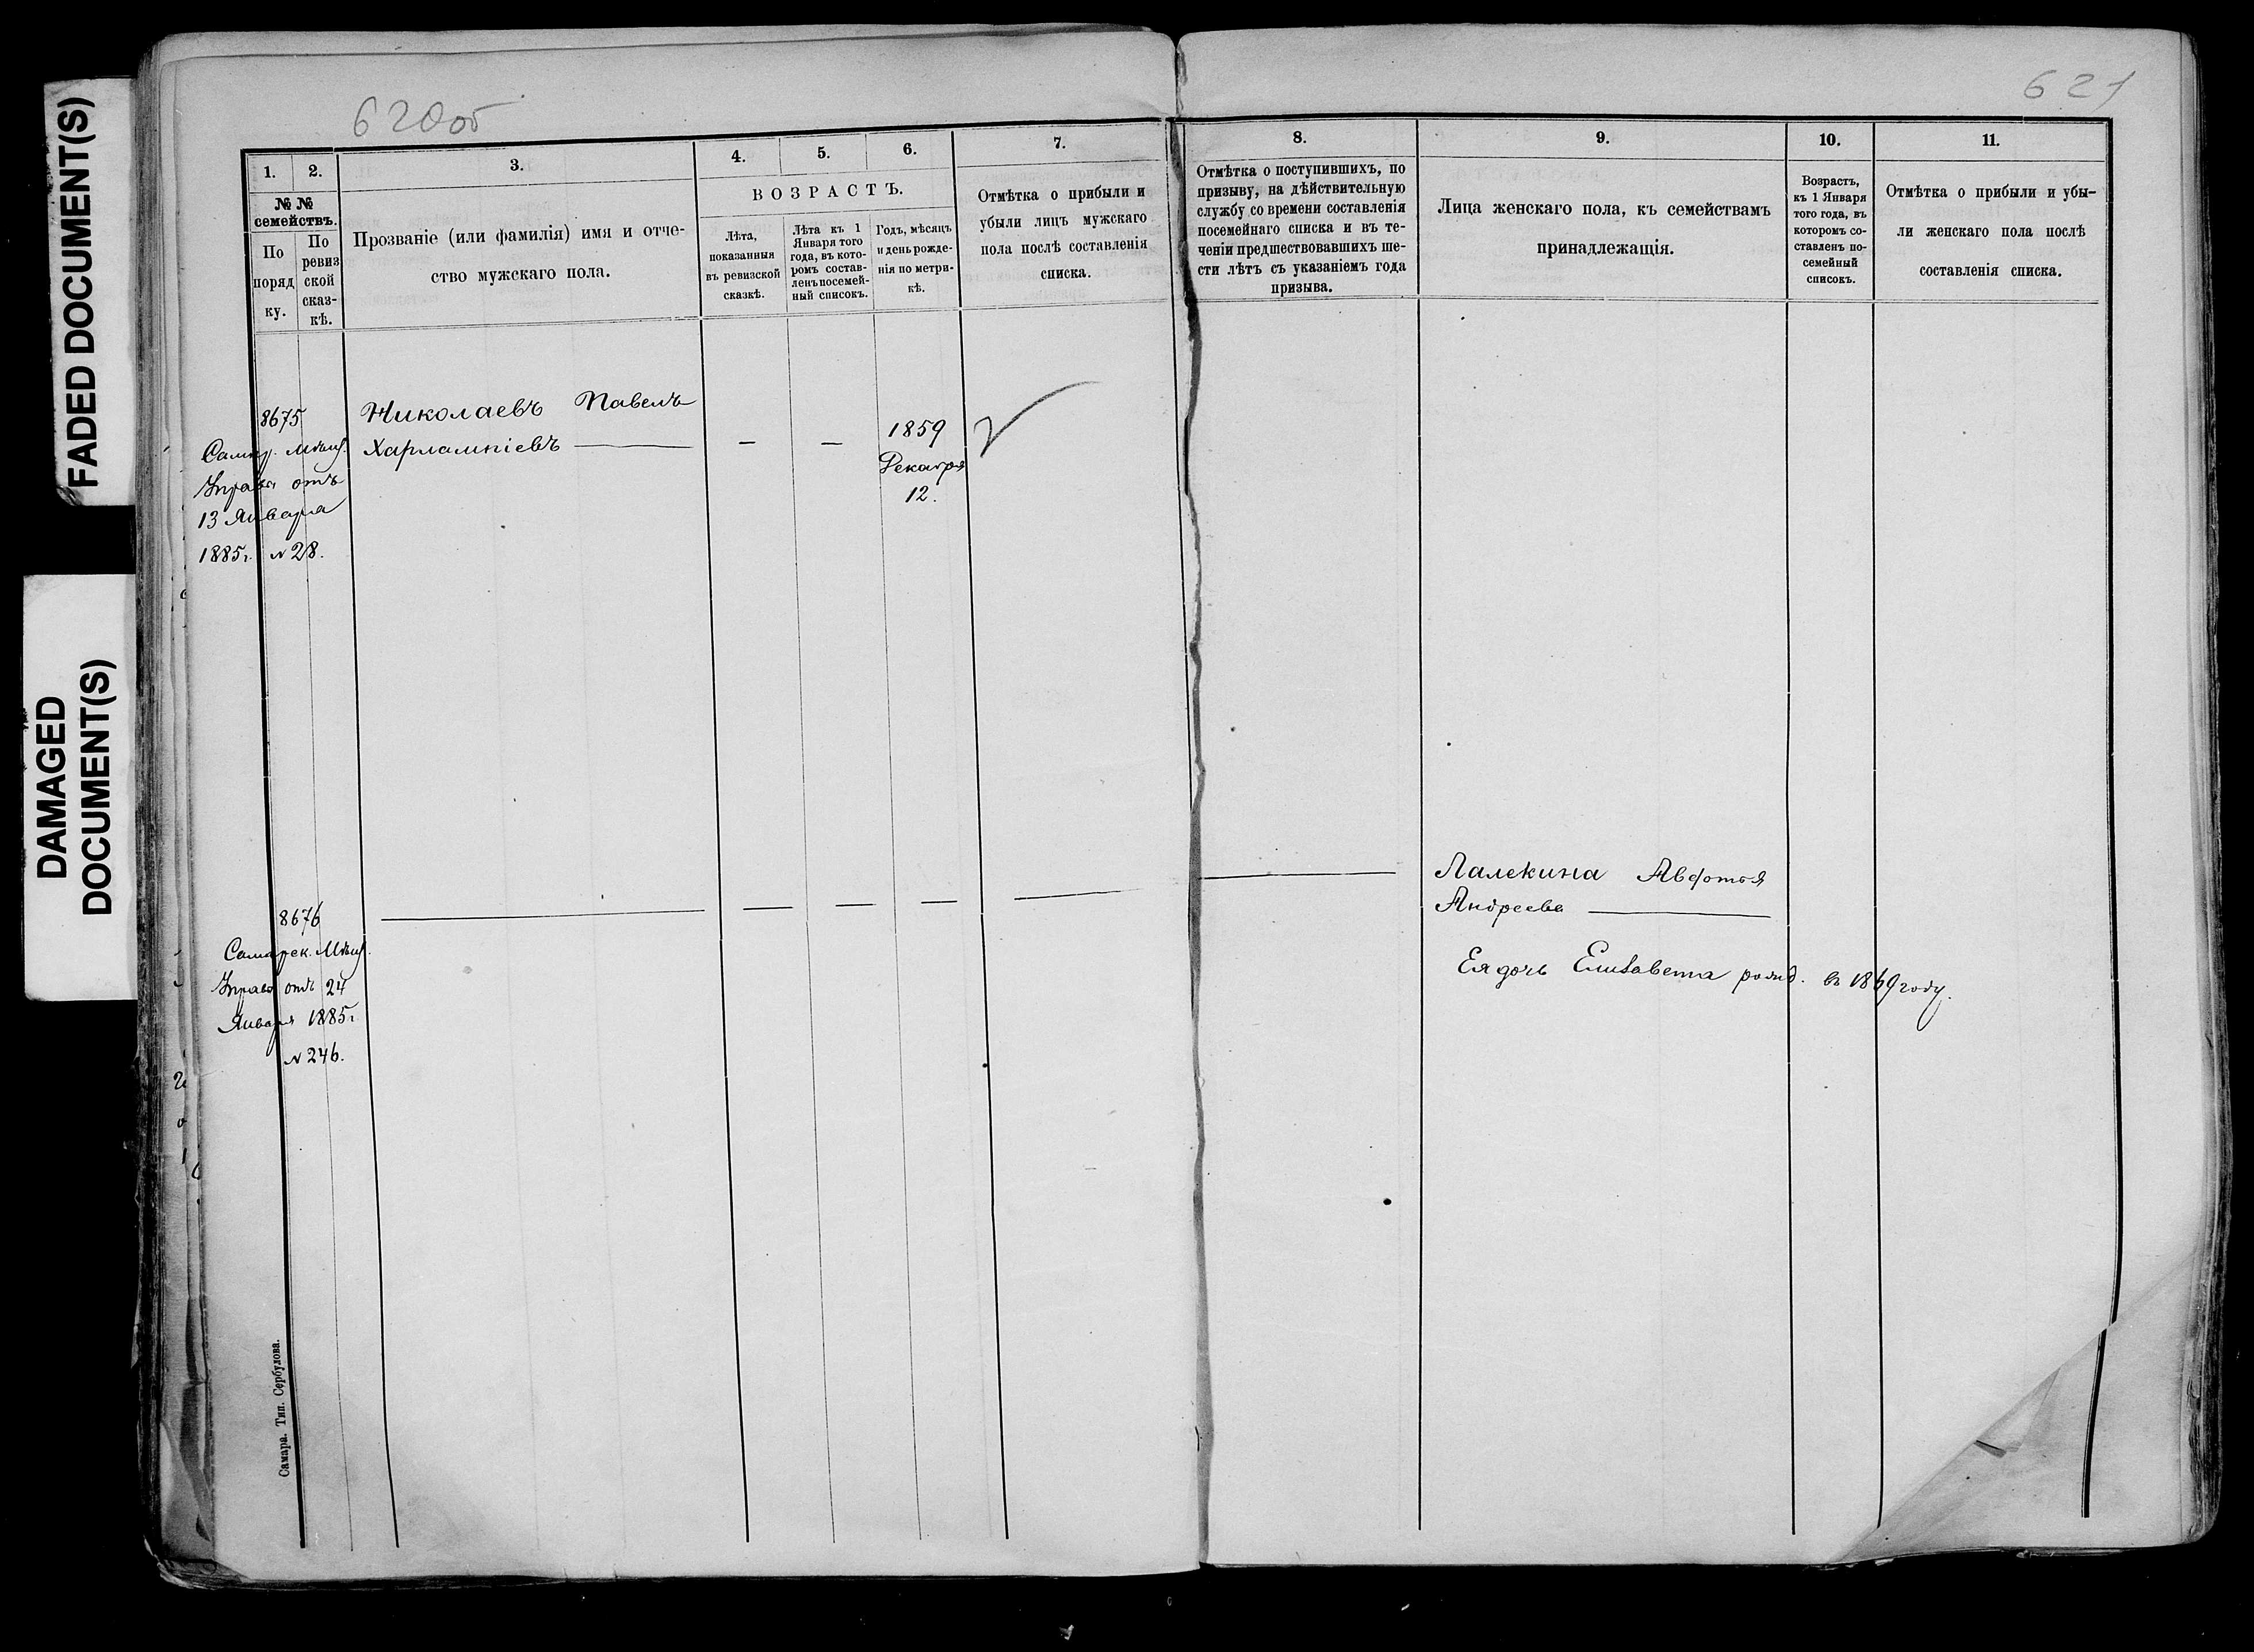 FADED DOCUMENT(S)
DAMAGED
DOCUMENT(S)
620об
621
1.
2.
3.
4.
5.
6.
7.
№ №
семействъ.
По
поряд
ку.
По
ревиз
ской
сказ-
кѣ.
Прозваніе (или фамилія) имя и отче-
ство мужскаго пола.
ВОЗРАСТЪ.
Лѣта,
показанныя
въ ревизской
сказкѣ.
Лѣта къ 1
Января того
года, въ кото-
ромъ состав-
ленъ посемей-
ный списокъ.
Годъ, мѣсяцъ
и день рожде-
нія по метри-
кѣ.
Отмѣтка о прибыли и
убыли лицъ мужскаго
пола послѣ составленія
списка.
8.
9.
10.
11.
Отмѣтка о поступившихъ, по
призыву, на дѣйствительную
службу со времени составленія
посемейнаго списка и въ те-
ченіи предшествовавшихъ ше-
сти лѣтъ съ указаніемъ года
призыва.
Лица женскаго пола, къ семействамъ
принадлежащія.
Возрастъ,
къ 1 Января
того года, въ
которомъ со-
ставленъ по-
семейный
списокъ.
Отмѣтка о прибыли и убы-
ли женскаго пола послѣ
составленія списка.
8675
Самар. Мѣщ.
Управа отъ
13 Января
1885г. № 28.
Николаевъ Павелъ
Харлампіевъ
— —
1859
Декабря
12.
8676
Самарск. Мѣщ.
Управа отъ 24
Января 1885г
№ 246.
Лалекина Авдотья
Андреева
Ея дочь Елизавета рожд. въ 1869 году.
Самара. Тип. Сербулова.